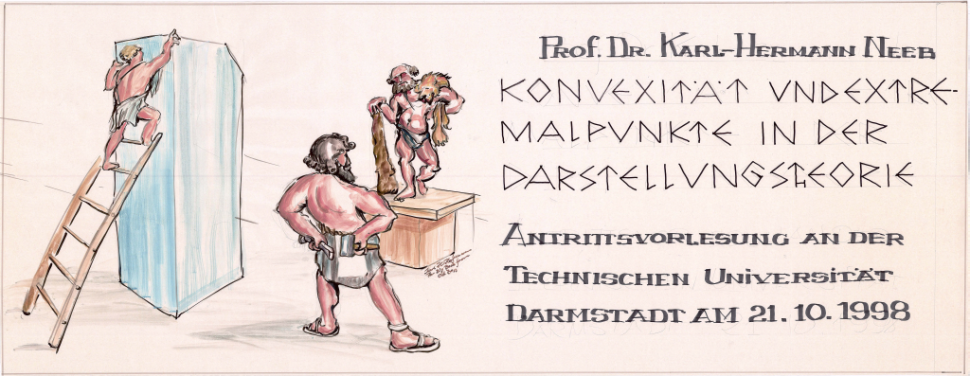 PROF. DR. KARL-HERMANN NEEB
KONVEXITÄT VNDEXTRE-
MALPVNKTE IN DER
DARSTELLVNGSTHEORIE
ANTRITTSVORLESUNG AN DER
TECHNISCHEN UNIVERSITÄT
DARMSTADT AM 21.10.1998